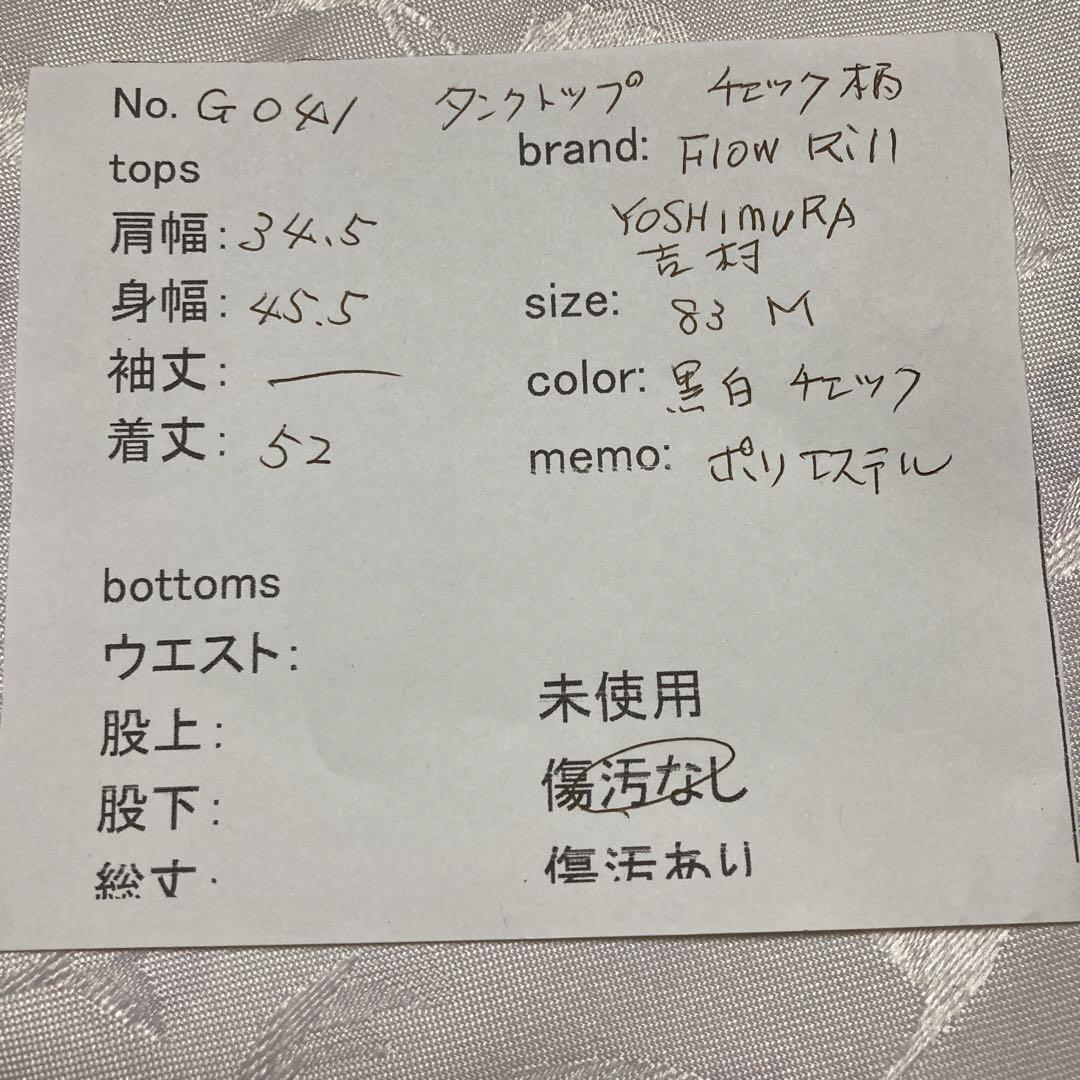 No. G041 タンクトップ チェック柄
tops
brand: Flow Rill
肩幅: 34.5
YOSHIMURA
吉村
身幅: 45.5
size: 83 M
袖丈: —
color: 黒白 チェック
着丈: 52
memo: ポリエステル
bottoms
ウエスト:
股上:
未使用
股下:
傷汚なし
総丈:
傷汚あり